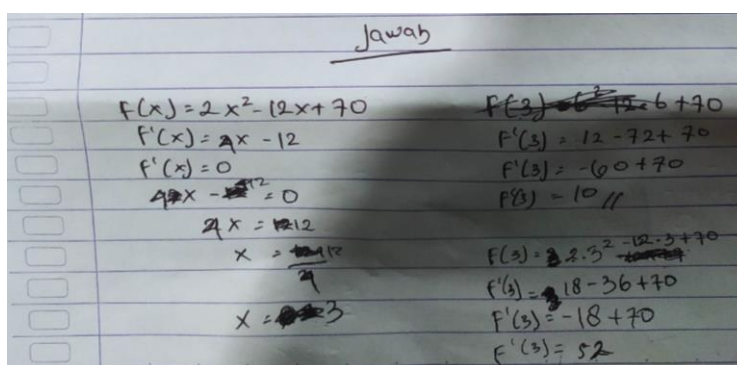 Jawab
F(x) = 2x² - 12x + 70
F'(x) = 4x - 12
F'(x) = 0
4x - 12 = 0
4x = 12
x = 12
4
x = 3
F(3) 6² 12.6 + 70
F'(3) = 12 - 72 + 70
F'(3) = -60 + 70
F'(3) = 10 //
F(3) = 2.3² - 12.3 + 70
F'(3) = 18 - 36 + 70
F'(3) = -18 + 70
F'(3) = 52